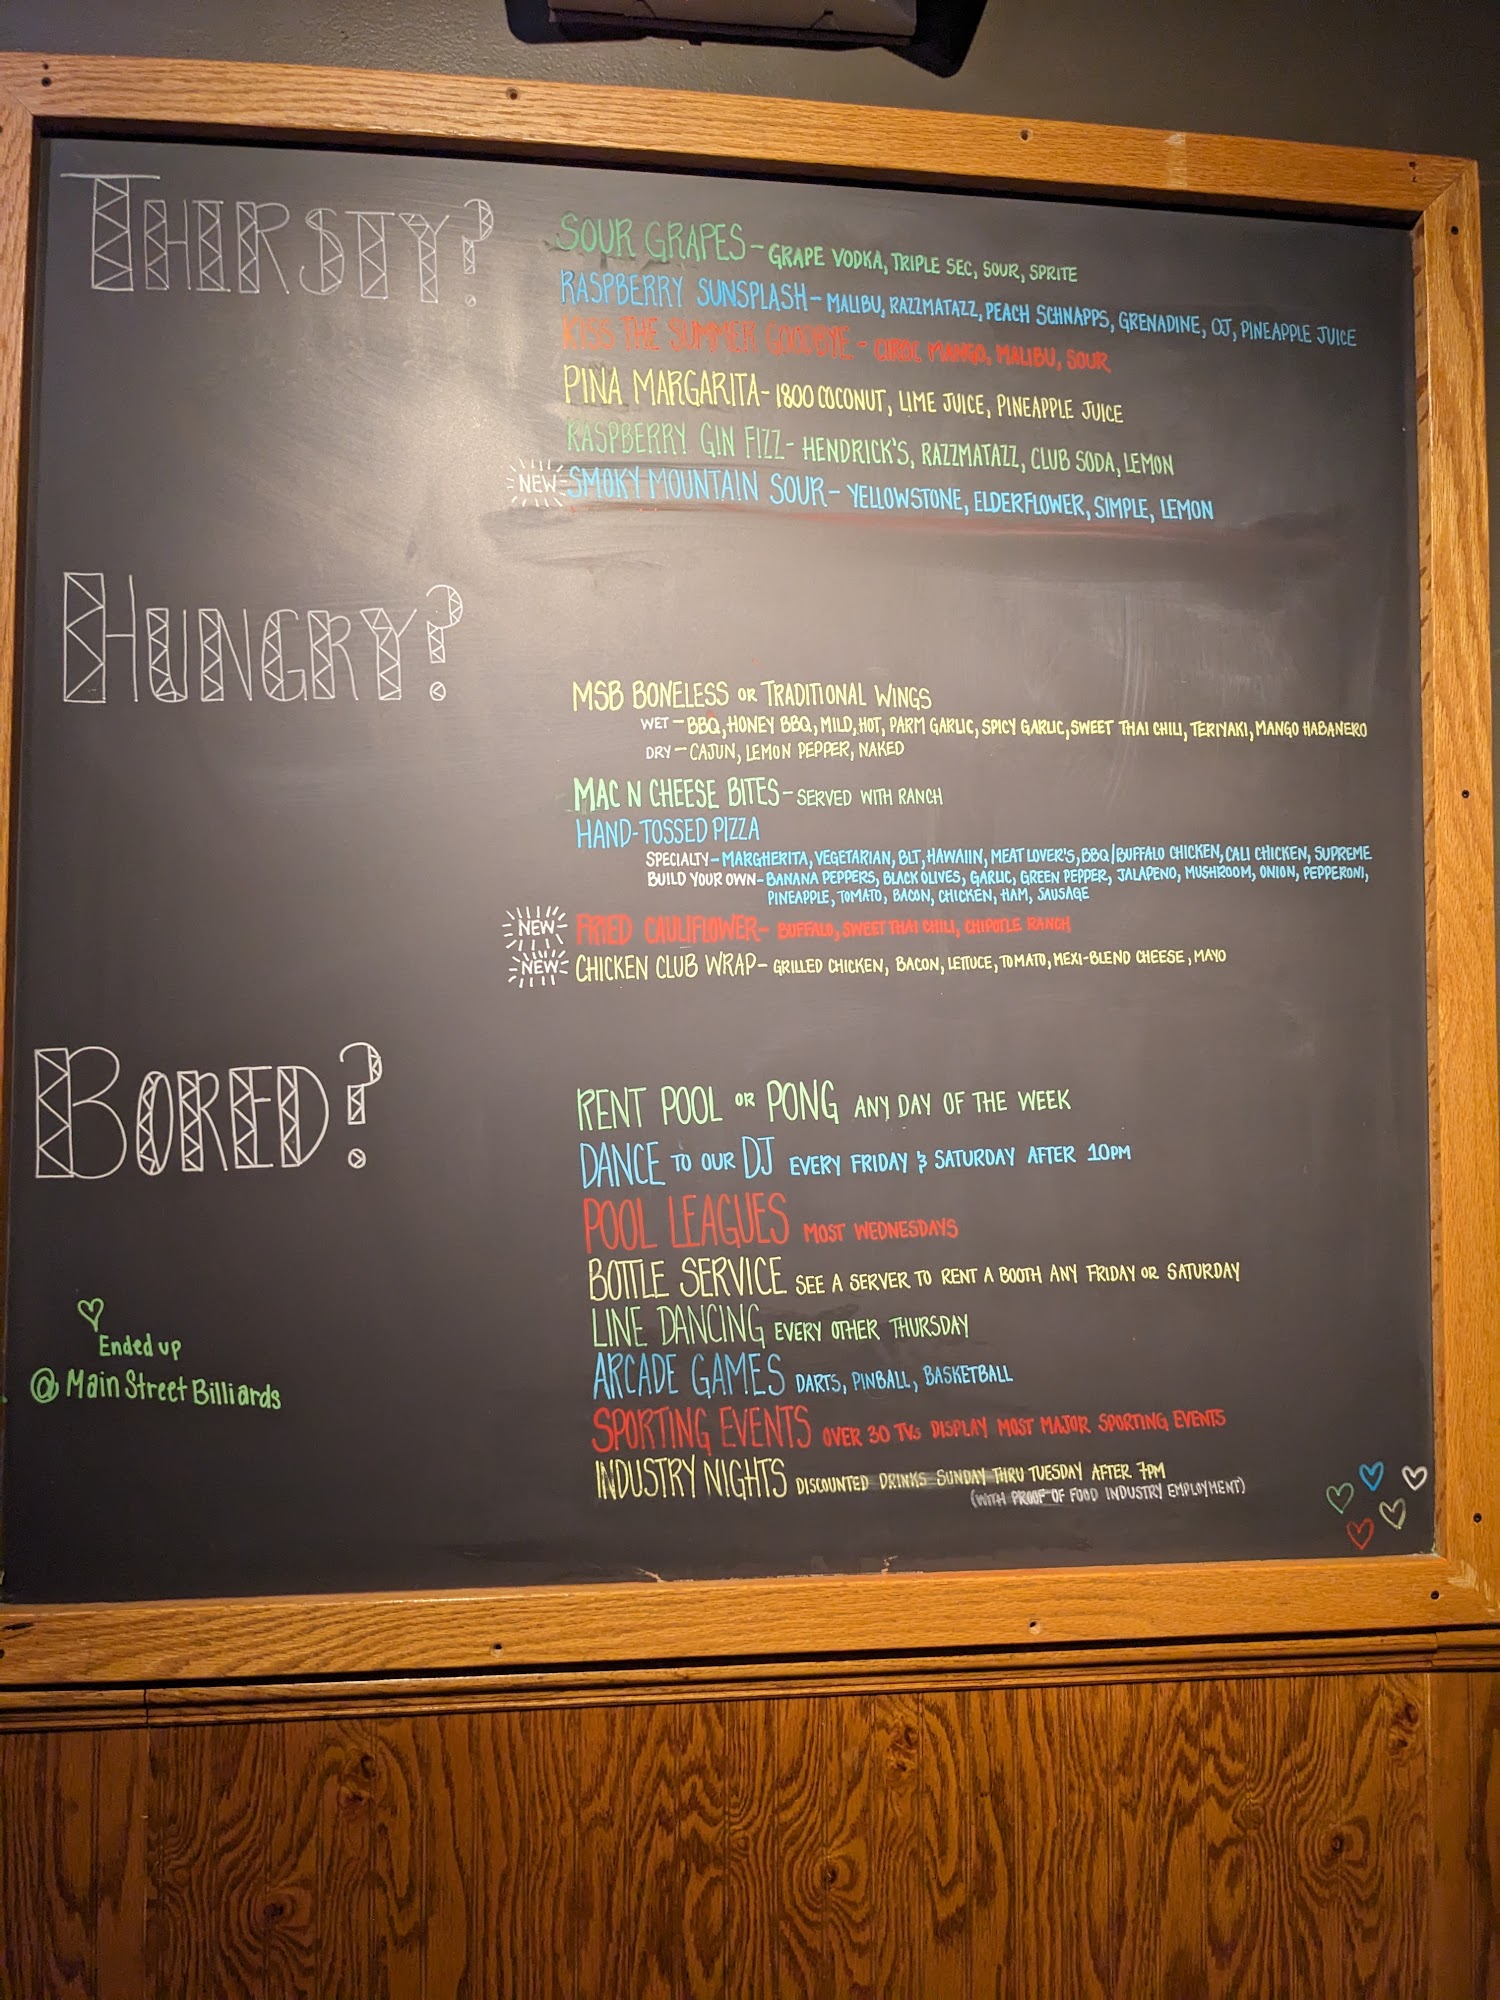 THIRSTY?
SOUR GRAPES - GRAPE VODKA, TRIPLE SEC, SOUR, SPRITE
RASPBERRY SUNSPLASH - MALIBU, RAZZMATAZZ, PEACH SCHNAPPS, GRENADINE, OJ, PINEAPPLE JUICE
KISS THE SUMMER GOODBYE - CIROC MANGO, MALIBU, SOUR
PINA MARGARITA - 1800 COCONUT, LIME JUICE, PINEAPPLE JUICE
RASPBERRY GIN FIZZ - HENDRICK'S, RAZZMATAZZ, CLUB SODA, LEMON
NEW SMOKY MOUNTAIN SOUR - YELLOWSTONE, ELDERFLOWER, SIMPLE, LEMON
HUNGRY?
MSB BONELESS OR TRADITIONAL WINGS
WET - BBQ, HONEY BBQ, MILD, HOT, PARM GARLIC, SPICY GARLIC, SWEET THAI CHILI, TERIYAKI, MANGO HABANERO
DRY - CAJUN, LEMON PEPPER, NAKED
MAC N CHEESE BITES - SERVED WITH RANCH
HAND-TOSSED PIZZA
SPECIALTY - MARGHERITA, VEGETARIAN, BLT, HAWAIIN, MEAT LOVER'S, BBQ/BUFFALO CHICKEN, CALI CHICKEN, SUPREME
BUILD YOUR OWN - BANANA PEPPERS, BLACK OLIVES, GARLIC, GREEN PEPPER, JALAPENO, MUSHROOM, ONION, PEPPERONI,
PINEAPPLE, TOMATO, BACON, CHICKEN, HAM, SAUSAGE
NEW FRIED CAULIFLOWER - BUFFALO, SWEET THAI CHILI, CHIPOTLE RANCH
NEW CHICKEN CLUB WRAP - GRILLED CHICKEN, BACON, LETTUCE, TOMATO, MEXI-BLEND CHEESE, MAYO
BORED?
RENT POOL OR PONG ANY DAY OF THE WEEK
DANCE TO OUR DJ EVERY FRIDAY & SATURDAY AFTER 10PM
POOL LEAGUES MOST WEDNESDAYS
BOTTLE SERVICE SEE A SERVER TO RENT A BOOTH ANY FRIDAY OR SATURDAY
LINE DANCING EVERY OTHER THURSDAY
ARCADE GAMES DARTS, PINBALL, BASKETBALL
SPORTING EVENTS OVER 30 TVs DISPLAY MOST MAJOR SPORTING EVENTS
INDUSTRY NIGHTS DISCOUNTED DRINKS SUNDAY THRU TUESDAY AFTER 7PM
(WITH PROOF OF FOOD INDUSTRY EMPLOYMENT)
Ended up
@ Main Street Billiards